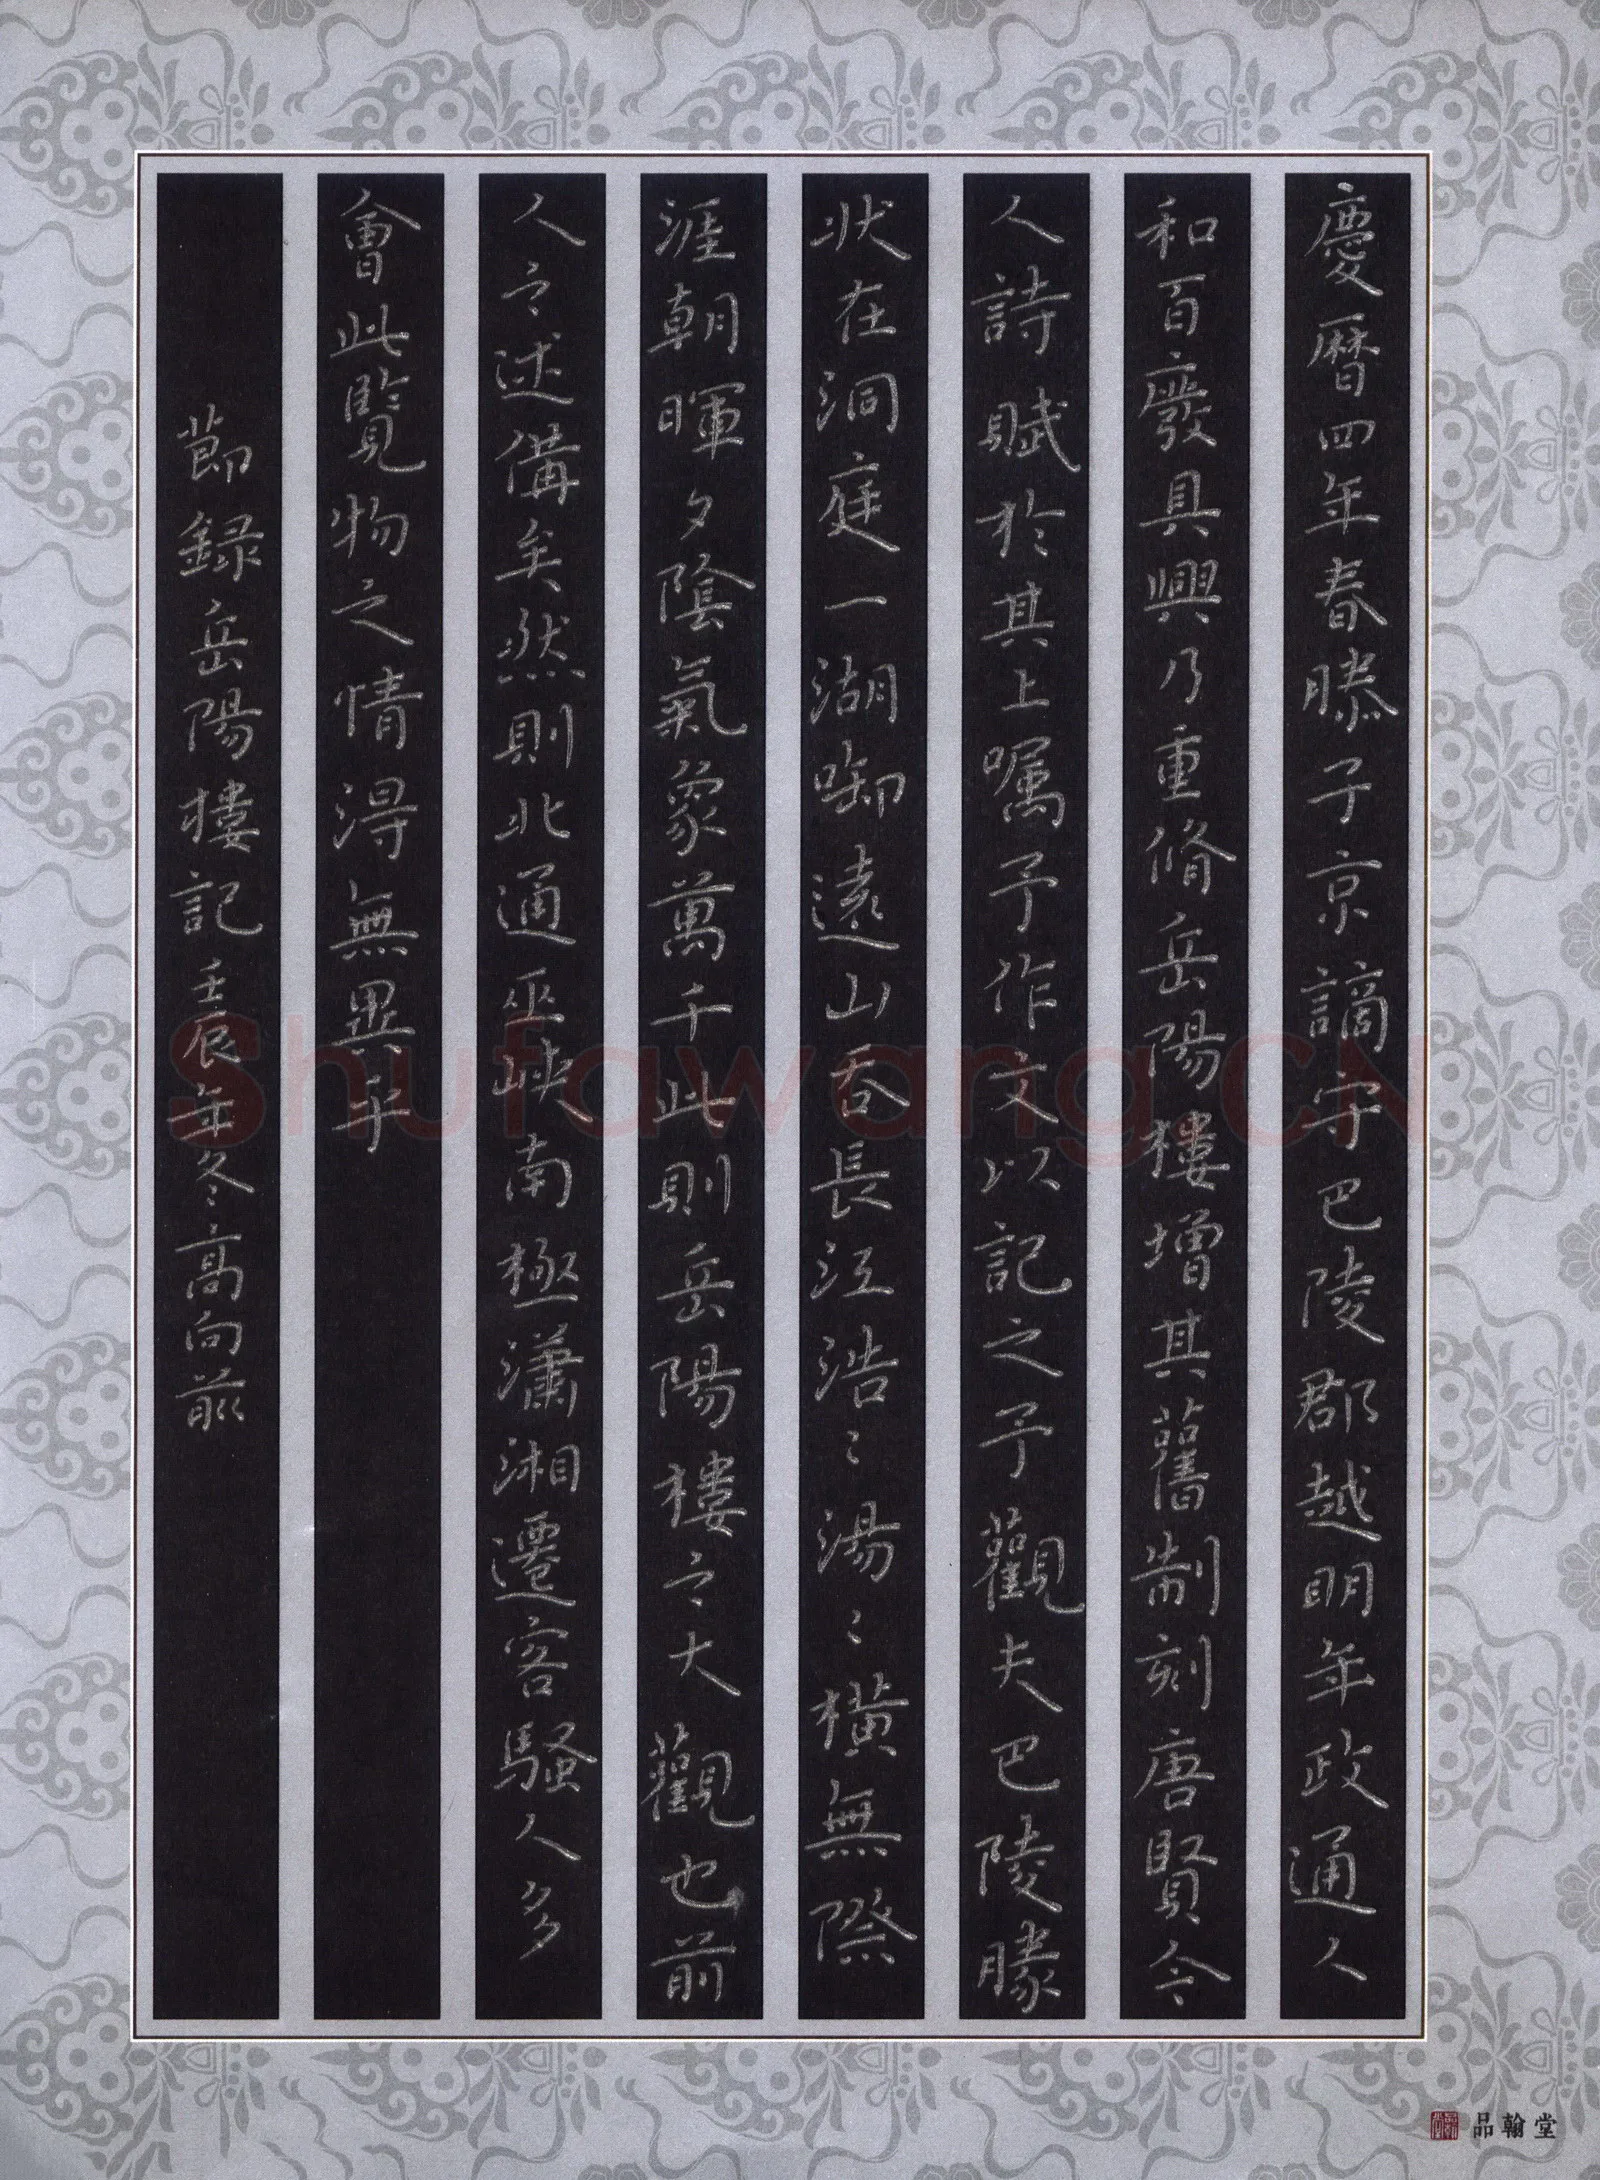 慶曆四年春滕子京謫守巴陵郡越明年政通人
和百廢具興乃重脩岳陽樓增其舊制刻唐賢今
人詩賦於其上嘱予作文以記之予觀夫巴陵勝
狀在洞庭一湖啣遠山吞長江浩〻湯〻橫無際
涯朝暉夕陰氣象萬千此則岳陽樓之大觀也前
人之述備矣然則北通巫峽南極瀟湘遷客騷人多
會此覽物之情得無異乎
節録岳陽樓記壬辰年冬高向前
Shufawang.CN
品翰堂